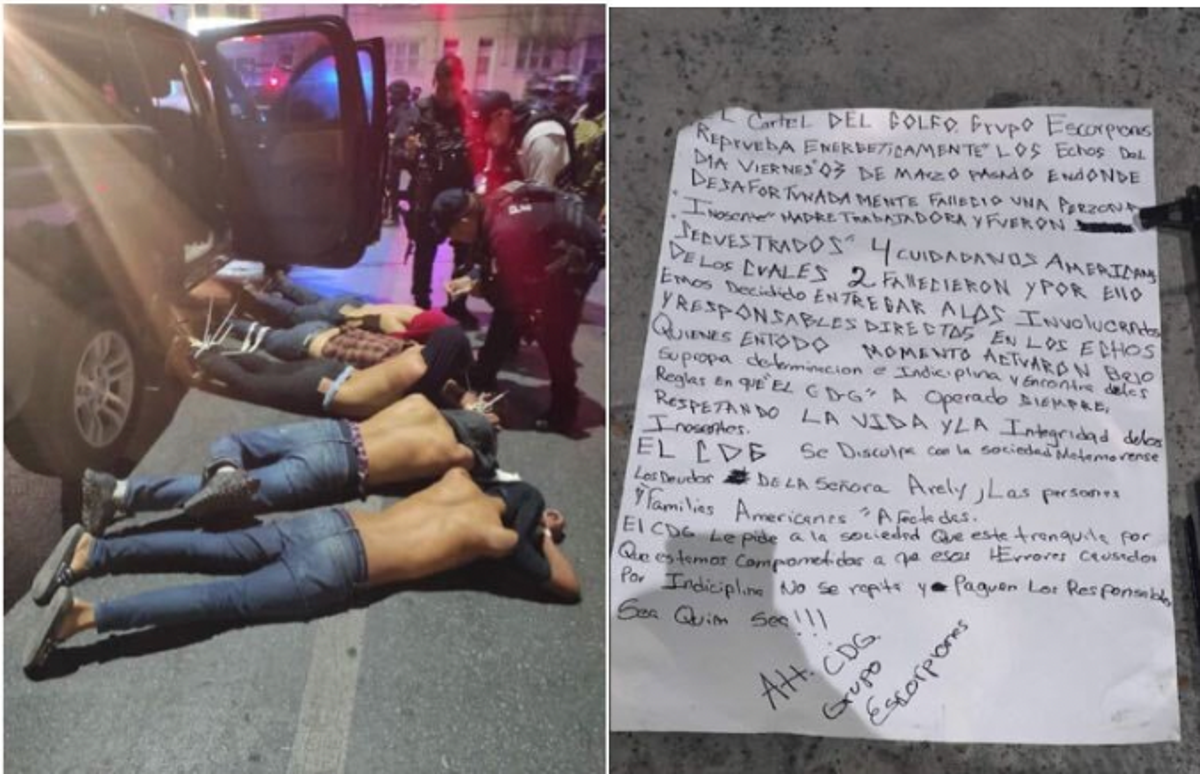 L Cartel DEL GOLFO. Grupo Escorpiones
REPRUEBA ENERGETICAMENTE" LOS Echos DEL
DIA VIERNES "03 DE MARZO PASADO ENDONDE
DESAFORTUNADAMENTE FALLECIO UNA PERZONA
Inosente" MADRE TRABAJADORA Y FUERON
SECUESTRADOS" 4 CUIDADANOS AMERICANS
DE LOS CUALES 2 FALLECIERON Y POR EllO
Emos Decidido ENTREGAR A LOS INVOLUCRADOS
Y RESPONSABLES DIRECTOS EN LOS ECHOS
QUIENES ENTODO MOMENTO ACTUARON BAJO
Su propa determinacion e Indiciplina y encontra delas
Reglas En que "EL CDG" A Operado SIEMPRE,
RESPETANDO LA VIDA Y LA Integridad delos
Inosentes.
EL CDG Se Disculpa con la sociedad Matamorense
Los Deudos DE LA Señora Arely, Las personas
y Familias Americanes "Afectadas.
El CDG Le pide a la sociedad Que este tranquila por
Que estamos Comprometidos a qe esos Errores causados
Por Indiciplina No se repita y Paguen Los Responsables
Sea Quim Sea!!!
Att. CDG.
Grupo
Escorpiones